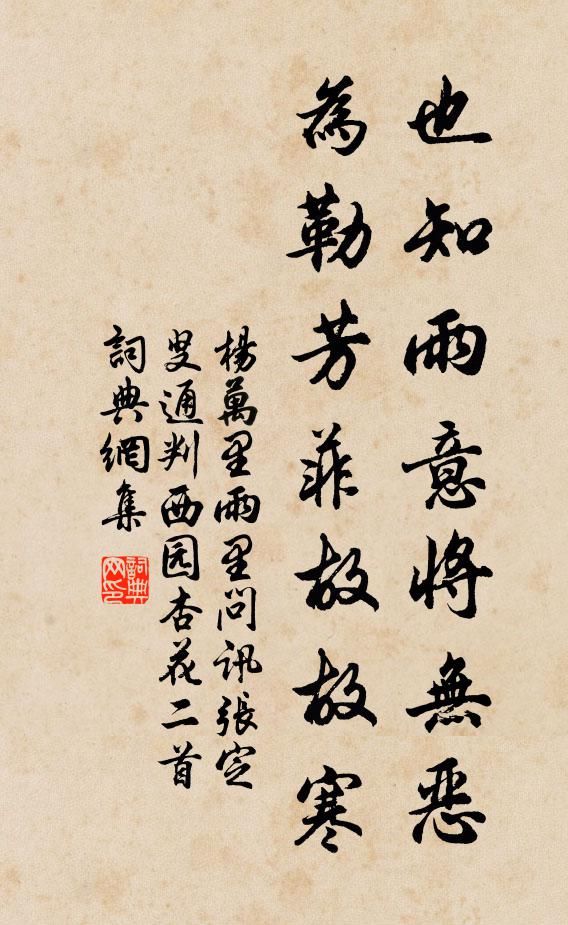 也知雨意將無惡
為勒芳菲故故寒
楊萬里雨里问訊張定
叟通判西园杏花二首
詞典網集
詞典網印